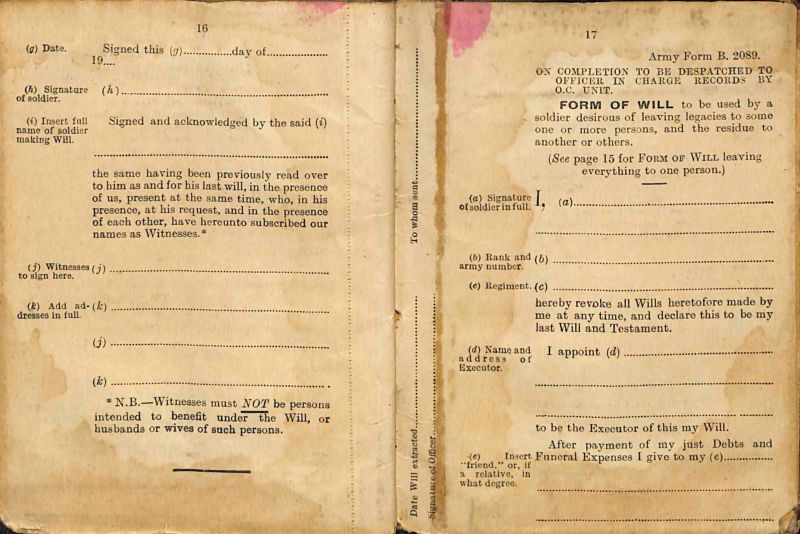 16
(g) Date. Signed this (g)...............day of..................
19....
(h) Signature of soldier. (h)
(i) Insert full name of soldier making Will. Signed and acknowledged by the said (i)
the same having been previously read over
to him as and for his last will, in the presence
of us, present at the same time, who, in his
presence, at his request, and in the presence
of each other, have hereunto subscribed our
names as Witnesses.*
(j) Witnesses to sign here. (j)
(k) Add ad-dresses in full. (k)
(j)
(k)
* N.B.—Witnesses must NOT be persons
intended to benefit under the Will, or
husbands or wives of such persons.
To whom sent
Date Will extracted
Signature of Officer
17
Army Form B. 2089.
ON COMPLETION TO BE DESPATCHED TO
OFFICER IN CHARGE RECORDS BY
O.C. UNIT.
FORM OF WILL to be used by a
soldier desirous of leaving legacies to some
one or more persons, and the residue to
another or others.
(See page 15 for FORM OF WILL leaving
everything to one person.)
(a) Signature of soldier in full. I, (a)
(b) Rank and army number. (b)
(c) Regiment. (c)
hereby revoke all Wills heretofore made by
me at any time, and declare this to be my
last Will and Testament.
(d) Name and address of Executor. I appoint (d)
to be the Executor of this my Will.
After payment of my just Debts and
(e) Insert "friend," or, if a relative, in what degree. Funeral Expenses I give to my (e)